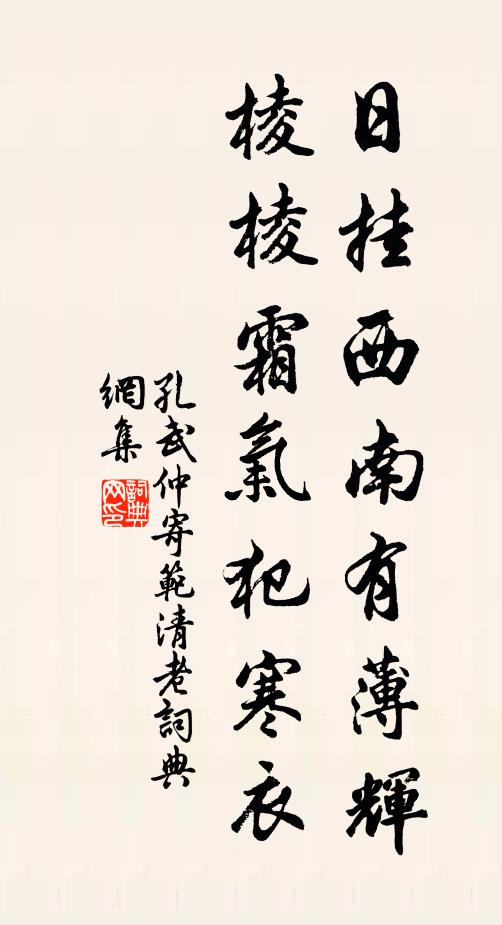 日挂西南有薄輝
棱棱霜氣犯寒衣
孔武仲寄範清老詞典
網集
詞典
网印